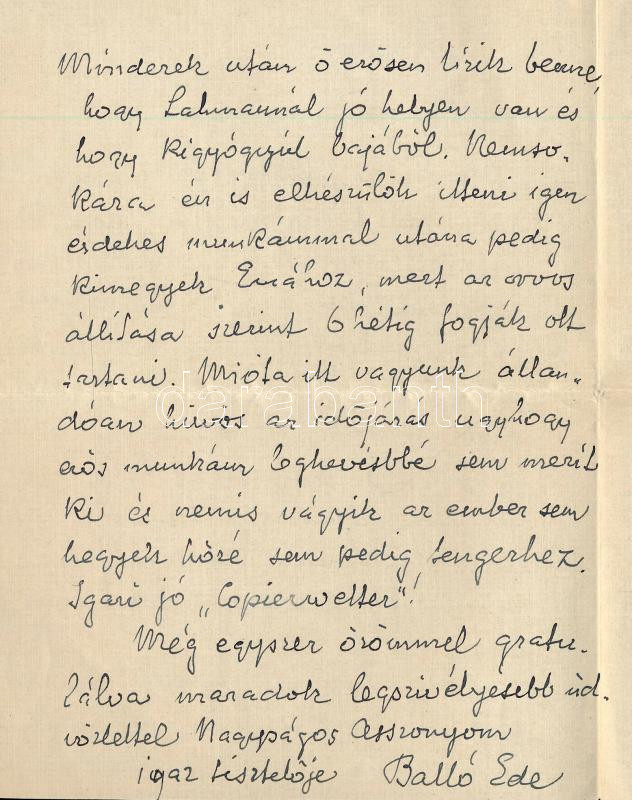 Minderek után ő erősen bízik benne,
hogy Lahmannál jó helyen van és
hogy kigyógyúl bajából. Nemso-
kára én is elkészülök itteni igen
érdekes munkámmal utána pedig
kimegyek Emához, mert az orvos
állítása szerint 6 hétig fogják ott
tartani. Mióta itt vagyunk állan-
dóan hűvös az időjárás ugyhogy
erős munkám legkevésbbé sem merít
ki és nemis vágyik az ember sem
hegyek közé sem pedig tengerhez.
Igazi jó „Copierwetter"!
Még egyszer örömmel gratu-
lálva maradok legszivélyesebb üd-
vözlettel Nagyságos Asszonyom
igaz tisztelője Balló Ede
darabanth